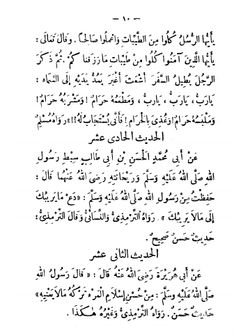 — ١٠ —
يٰأَيُّهَا الرُّسُلُ كُلُوا مِنَ الطَّيِّبَاتِ وَاعْمَلُوا صَالِحًا . وَقَالَ تَعَالَى :
يٰأَيُّهَا الَّذِينَ آمَنُوا كُلُوا مِنْ طَيِّبَاتِ مَا رَزَقْنَاكُمْ . ثُمَّ ذَكَرَ
الرَّجُلَ يُطِيلُ السَّفَرَ أَشْعَثَ أَغْبَرَ يَمُدُّ يَدَيْهِ إِلَى السَّمَاءِ :
يَارَبِّ ، يَارَبِّ ، وَمَطْعَمُهُ حَرَامٌ ! وَمَشْرَبُهُ حَرَامٌ !
وَمَلْبَسُهُ حَرَامٌ ! وَغُذِيَ بِالْحَرَامِ ! فَأَنَّى يُسْتَجَابُ لَهُ ! » رَوَاهُ مُسْلِمٌ
الحديث الحادى عشر
عَنْ أَبِى مُحَمَّدٍ الْحَسَنِ بْنِ عَلِىِّ بْنِ أَبِى طَالِبٍ سِبْطِ رَسُولِ
اللهِ صَلَّى اللهُ عَلَيْهِ وَسَلَّمَ وَرَيْحَانَتِهِ رَضِىَ اللهُ عَنْهُمَا قَالَ :
حَفِظْتُ مِنْ رَسُولِ اللهِ صَلَّى اللهُ عَلَيْهِ وَسَلَّمَ : « دَعْ مَا يَرِيبُكَ
إِلَى مَا لَا يَرِيبُكَ » . رَوَاهُ التِّرْمِذِىُّ وَالنَّسَائِىُّ وَقَالَ التِّرْمِذِىُّ :
حَدِيثٌ حَسَنٌ صَحِيحٌ .
الحديث الثانى عشر
عَنْ أَبِى هُرَيْرَةَ رَضِىَ اللهُ عَنْهُ قَالَ : « قَالَ رَسُولُ اللهِ
صَلَّى اللهُ عَلَيْهِ وَسَلَّمَ : مِنْ حُسْنِ إِسْلَامِ الْمَرْءِ تَرْكُهُ مَا لَا يَعْنِيهِ »
حَدِيثٌ حَسَنٌ . رَوَاهُ التِّرْمِذِىُّ وَغَيْرُهُ هٰكَذَا .